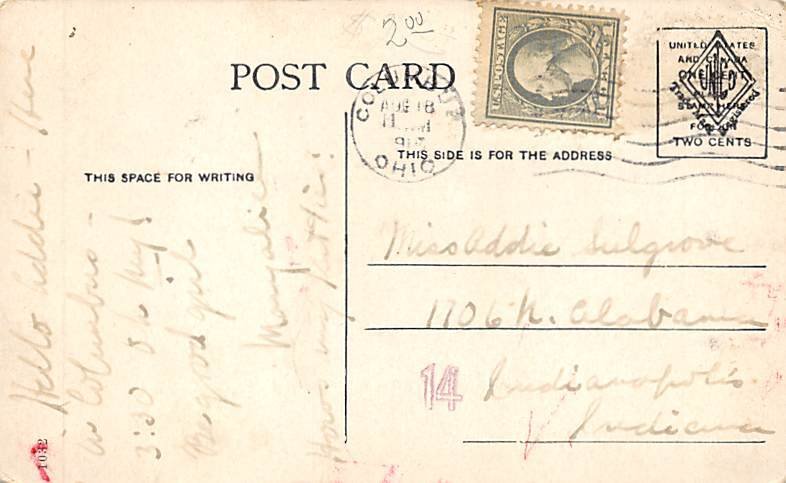 2.00
POST CARD
U.S. POSTAGE
COLUMBUS
AUG 18
11
OHIO
UNITED STATES
AND CANADA
ONE CENT
STAMP HERE
FOR
TWO CENTS
Trade Mark Registered
THIS SIDE IS FOR THE ADDRESS
THIS SPACE FOR WRITING
Hello Addie - Here
in Columbus -
3:30
Be good girl
How's my
Miss Addie Sulgrove
1706 N. Alabama
Indianapolis.
Indiana
14
1032